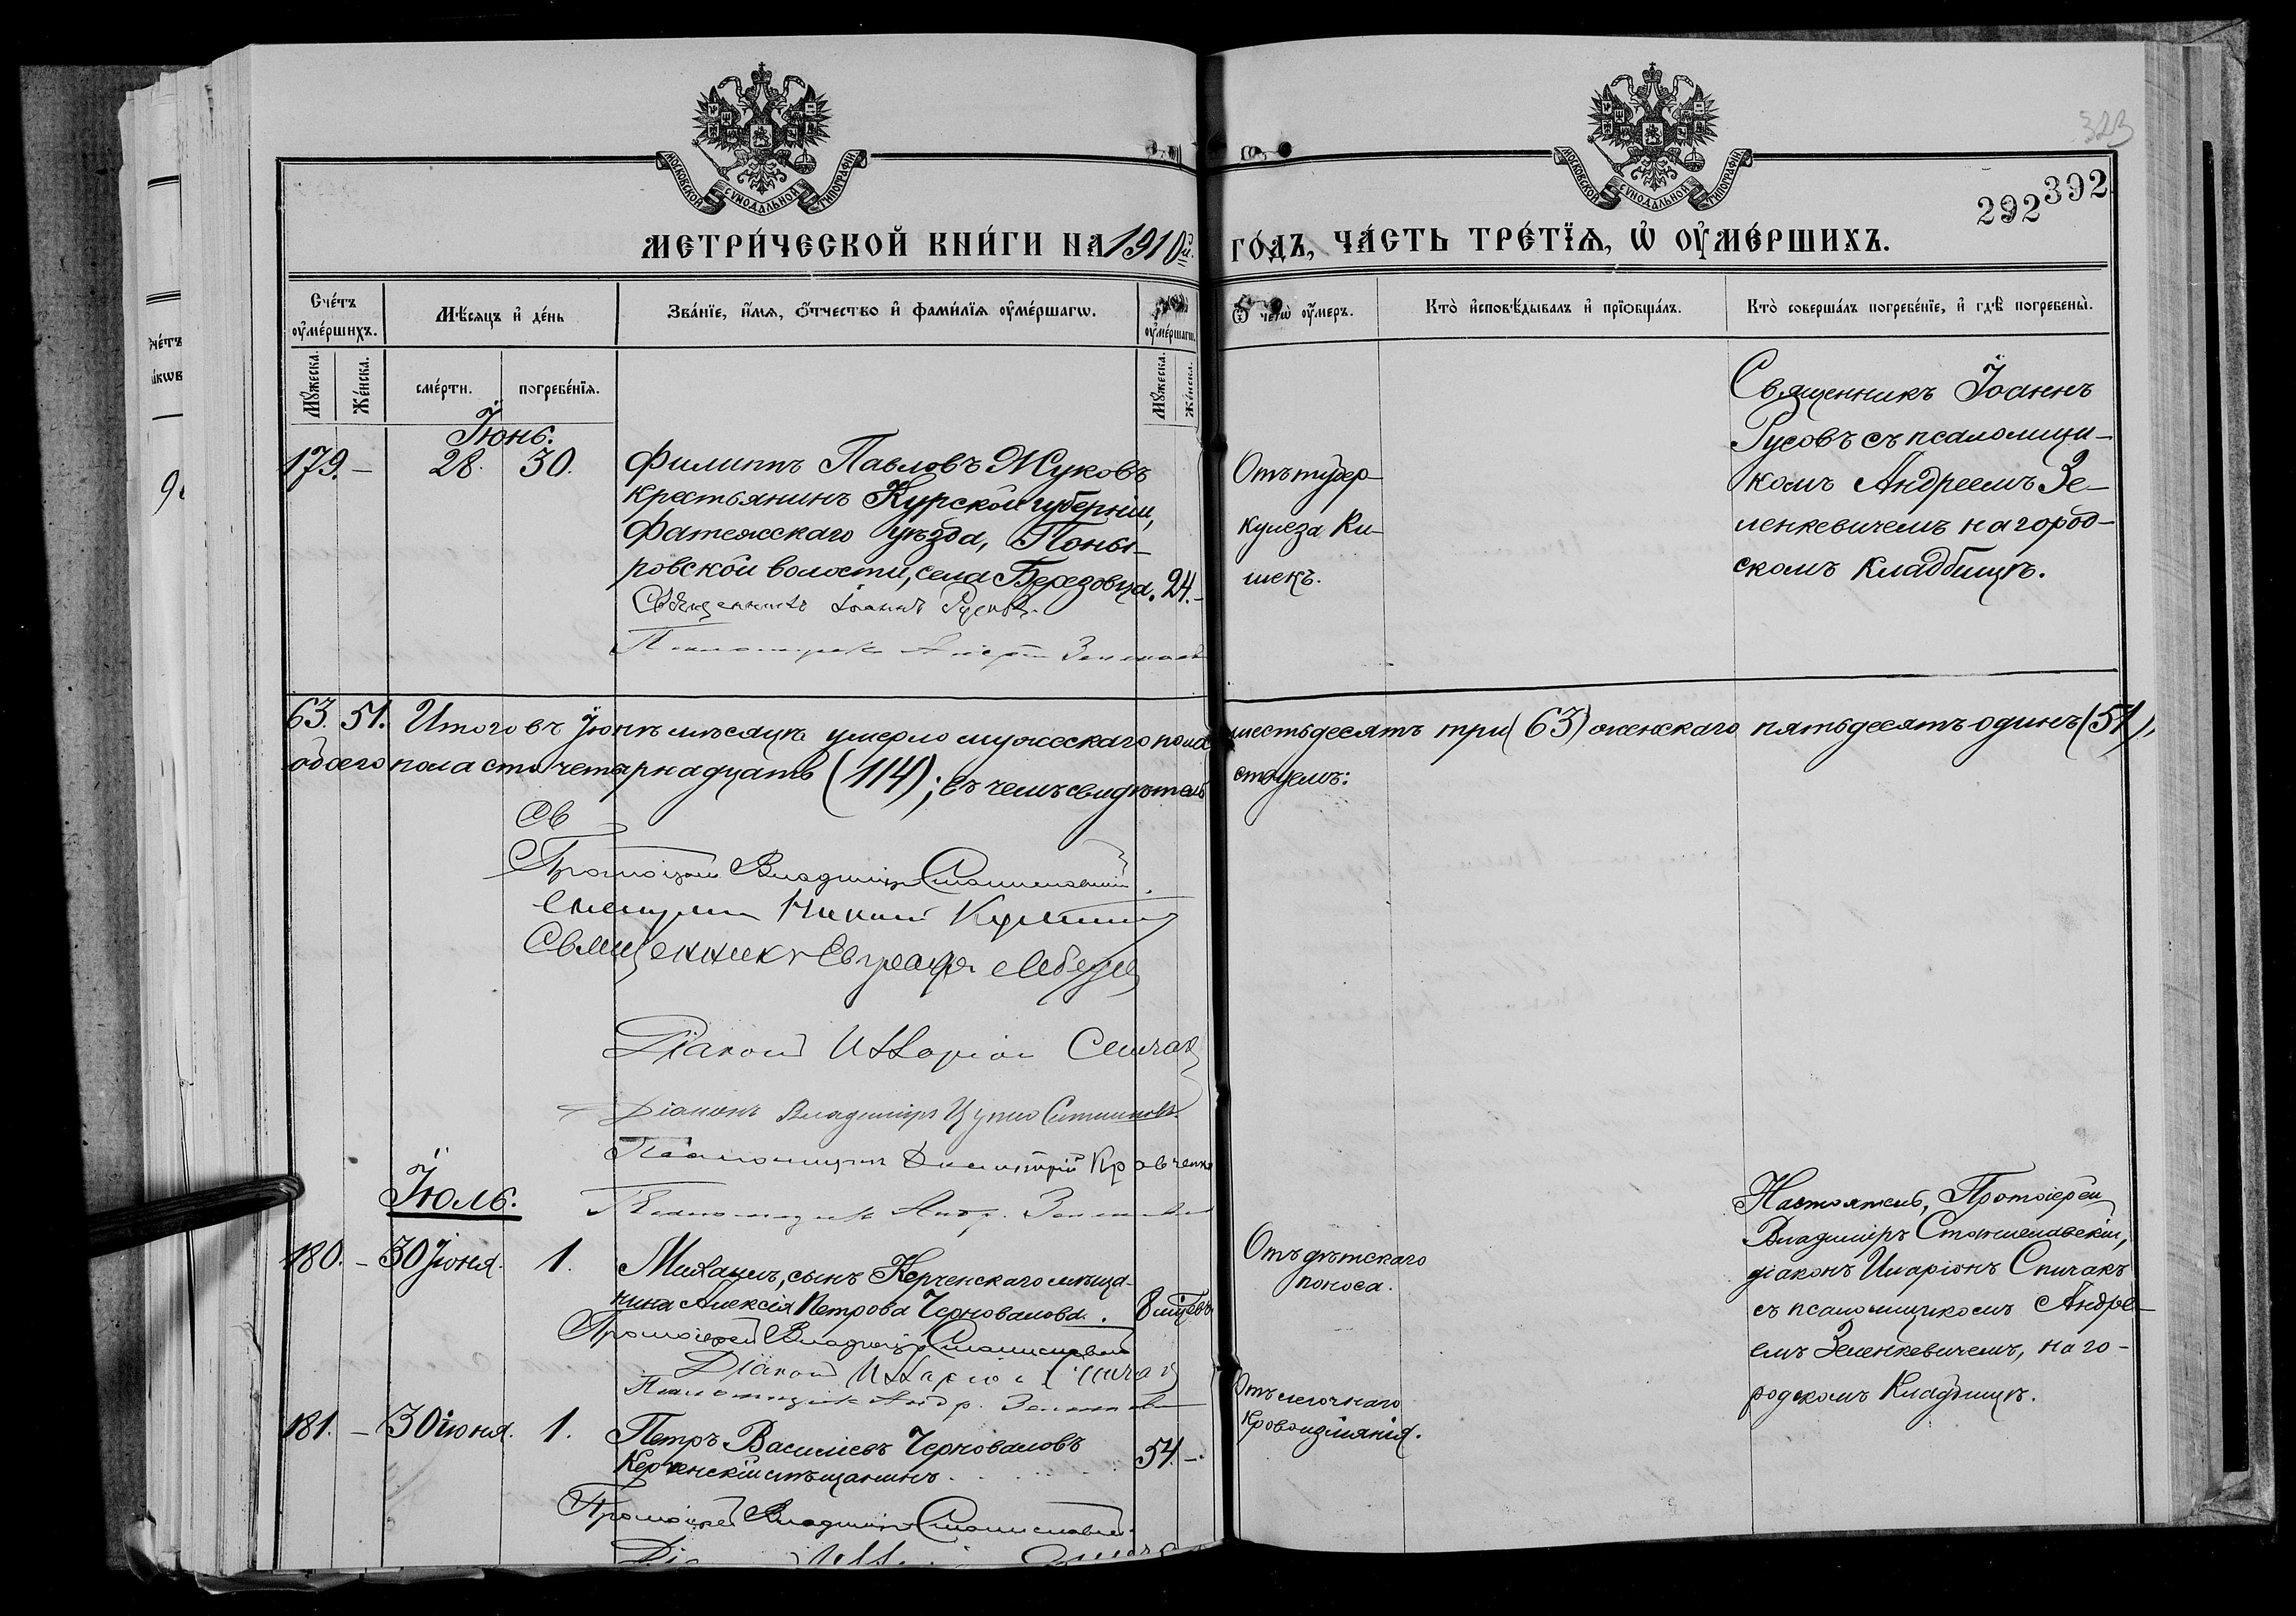 МОСКОВСКОЙ СУНОДАЛЬНОЙ ТИПОГРАФІИ
МОСКОВСКОЙ СУНОДАЛЬНОЙ ТИПОГРАФІИ
323
292 392
МЕТРИ́ЧЕСКОЙ КНИ́ГИ НА 1910й.
ГО́ДЪ, ЧА́СТЬ ТРЕ́ТЇѦ, Ѡ҆ ОУ҆МЕ́РШИХЪ.
Сче́тъ оу҆ме́ршихъ.
Мѣ́сѧцъ и҆ де́нь
Зва́нїе, и҆́мѧ, ѻ҆́тчество и҆ фами́лїѧ оу҆ме́ршагѡ.
оу҆ме́ршагѡ.
Ѿ чегѡ̀ оу҆́меръ.
Кто̀ и҆сповѣ́дывалъ и҆ прїѻбща́лъ.
Кто̀ соверша́лъ погребе́нїе, и҆ гдѣ̀ погребены̀.
Мꙋ́жеска.
Же́нска.
сме́рти.
погребе́нїѧ.
Мꙋ́жеска.
Же́нска.
Іюнь.
179. – 28. 30.
Филиппъ Павловъ Жуковъ
крестьянинъ Курской губерніи,
Фатежскаго уѣзда, Поны-
ровской волости, села Березовца. 24. –
Священникъ Іоаннъ Русовъ.
Псаломщикъ
Отъ тубер-
кулеза Ки-
шекъ.
Священникъ Іоаннъ
Русовъ съ псаломщи-
комъ Андреемъ Зе-
ленкевичемъ на город-
скомъ кладбищѣ.
63. 51. Итого въ Іюнѣ мѣсяцѣ умерло мужескаго пола шестьдесятъ три (63) женскаго пятьдесятъ одинъ (51),
обоего пола сто четырнадцать (114); въ чемъ свидѣтель
ствуемъ:
Св
Протоіерей Владиміръ Станиславскій
Священникъ
Священникъ Евграфъ Лебедев
Діаконъ Илларіон Спичак
Діаконъ Владиміръ
Псаломщикъ Димитрій Кравченко
Псаломщикъ Андр.
Іюль.
180. – 30 Іюня. 1.
Михаилъ, сынъ Керченскаго мѣща-
нина Алексія Петрова Черновалова. 8 мѣсцевъ
Протоіерей Владиміръ Станиславскій
Діаконъ Илларіон Спичак
Псаломщикъ Андр.
Отъ дѣтскаго
поноса.
Настоятель, Протоіерей
Владиміръ Станиславскій,
діаконъ Иларіонъ Спичакъ
съ псаломщикомъ Андре-
емъ Зеленкевичемъ, на го-
родскомъ Кладбищѣ.
181. – 30 іюня. 1.
Петръ Василіевъ Черноваловъ
Керченскій мѣщанинъ. 54. –.
Отъ легочнаго
кровоизліянія.
Протоіерей Владиміръ Станиславскій